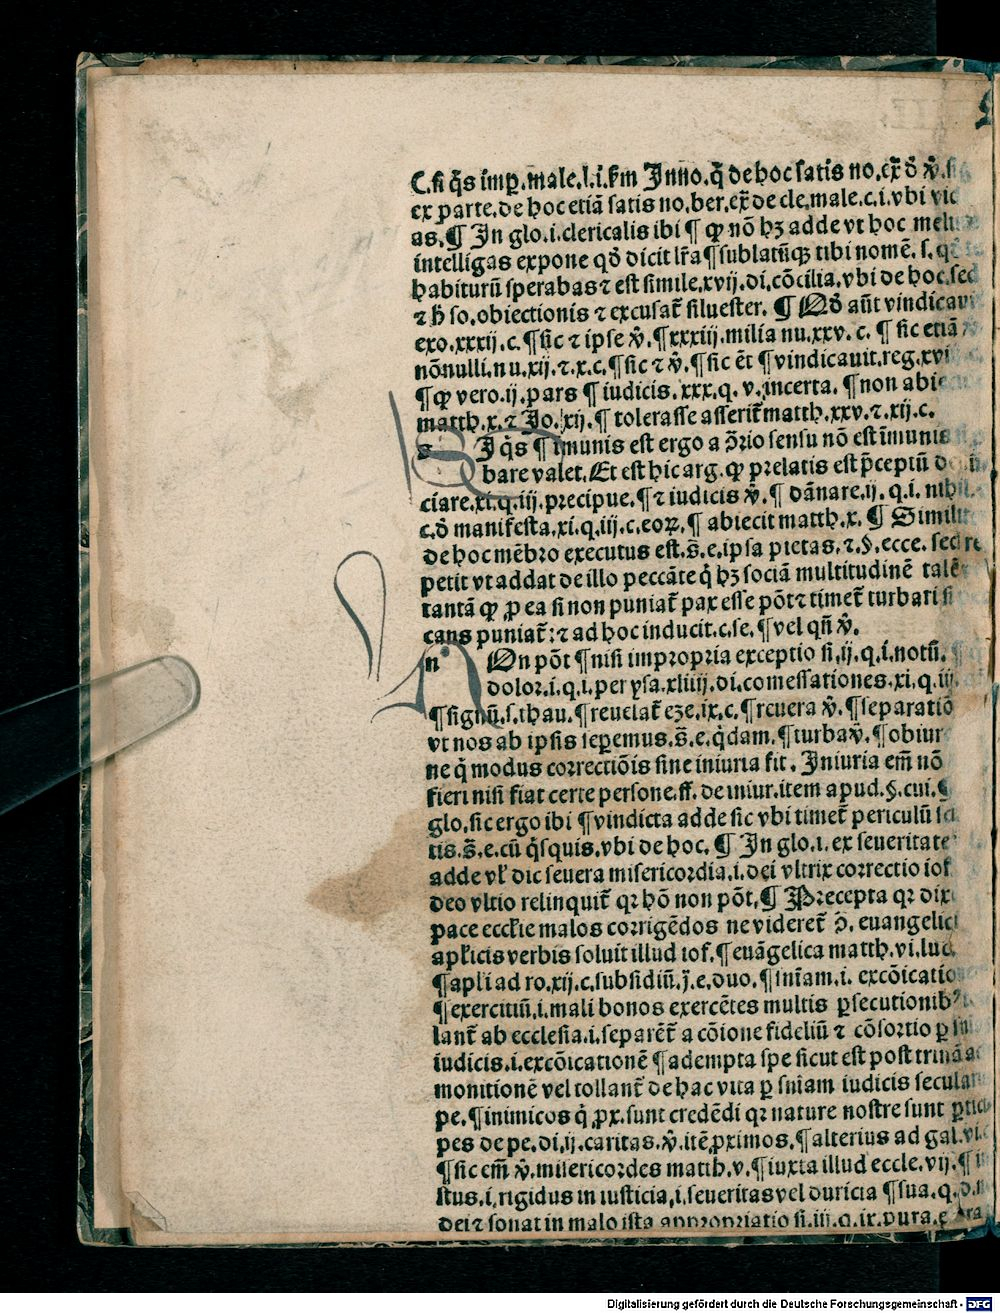 C. si q̄s imp̄. male. l. i. ẜm Inno. q̄ de hoc satis no. ex̄ d̄
ex parte. de hoc etiā satis no. ber. ex̄ de cle. male. c. i. vbi vic
as. ¶ In glo. i. clericalis ibi ¶ ꝙ nō hꝫ adde vt hoc meli
intelligas expone qd̄ dicit lr̄a ¶ sublatūꝙ tibi nomē. s. q
habiturū sperabas ⁊ est simile. xvij. di. cōcilia. vbi de hoc. sed
⁊ h̄ so. obiectionis ⁊ excusat̄ siluester. ¶ aūt vindicaui
exo. xxxij. c. ¶ sic ⁊ ipse v̄. ¶ xxxiij. milia nu. xxv. c. ¶ sic etiā
nōnulli. nu. xij. ⁊ x. c. ¶ sic ⁊ v̄. ¶ sic ēt ¶ vindicauit. reg. xvi
¶ ꝙ vero. ij. pars ¶ iudicis. xxx. q. v. incerta. ¶ non abie
matth. x. ⁊ Jo. xij. ¶ tolerasse asserit̄ matth. xxv. ⁊ xij. c.
s I q̄s ¶ īmunis est ergo a ↄ̄rio sensu nō est īmunis
bare valet. Et est hic arg. ꝙ prelatis est p̄ceptū
ciare. xi. q. iij. precipue. ¶ ⁊ iudicis v̄. ¶ dānare. ij. q. i. nihil
c. d̄ manifesta. xi. q. iij. c. eoꝝ. ¶ abiecit matth. x. ¶ Simili
de hoc mēbro executus est. s̄. e. ipsa pietas. ⁊. §. ecce. sed re
petit vt addat de illo peccāte q̇ hꝫ sociā multitudinē talē
tantā ꝙ ꝓ ea si non puniat̄ pax esse pōt ⁊ timet̄ turbari si
cans puniat̄: ⁊ ad hoc inducit. c. se. ¶ vel qn̄ v̄.
n On pōt ¶ nisi impropria exceptio si. ij. q. i. notū.
dolor. i. q. i. per ysa. xliiij. di. comessationes. xi. q. iij.
¶ signū. s. thau. ¶ reuelat̄ eze. ix. c. ¶ rcuera v̄. ¶ separatiō
vt nos ab ipsis seꝑemus. s̄. e. q̇dam. ¶ turba v̄. ¶ obiur
ne q̇ modus correctiōis sine iniuria fit. Iniuria em̄ nō
fieri nisi fiat certe persone. ff. de iniur. item apud. §. cui. ¶
glo. sic ergo ibi ¶ vindicta adde sic vbi timet̄ periculū sc
tis. s̄. e. cū q̇squis. vbi de hoc. ¶ In glo. i. ex seueritate
adde vl̄ dic seuera misericordia. i. dei vltrix correctio iof
deo vltio relinquit̄ qꝛ hō non pōt. ¶ Precepta qꝛ dix
pace ecclie malos corrigēdos ne videret̄ ↄ̄. euangelici
apl̄icis verbis soluit illud iof. ¶ euāgelica matth. vi. luc.
¶ apl̄i ad ro. xij. c. subsidiū. j̄. e. duo. ¶ sniam. i. excōicatio
¶ exercitiū. i. mali bonos exercētes multis ꝑsecutionibꝰ
lant̄ ab ecclesia. i. separēt̄ a cōione fideliū ⁊ cōsortio ꝑ sn
iudicis. i. excōicationē ¶ adempta spe sicut est post trinā a
monitionē vel tollant̄ de hac vita ꝑ sniam iudicis secular
pe. ¶ inimicos q̇ ꝓx. sunt credēdi qꝛ nature nostre sunt ꝑtici
pes de pe. di. ij. caritas. v̄. itē ꝓximos. ¶ alterius ad gal. vi.
¶ sic em̄ v̄. misericordes matth. v. ¶ iuxta illud eccle. vij. ¶ i
stus. i. rigidus in iusticia. i. seueritas vel duricia ¶ sua. q. d.
dei ⁊ sonat in malo ista appropriatio si. iij. q. ix. pura.
Digitalisierung gefördert durch die Deutsche Forschungsgemeinschaft - DFG